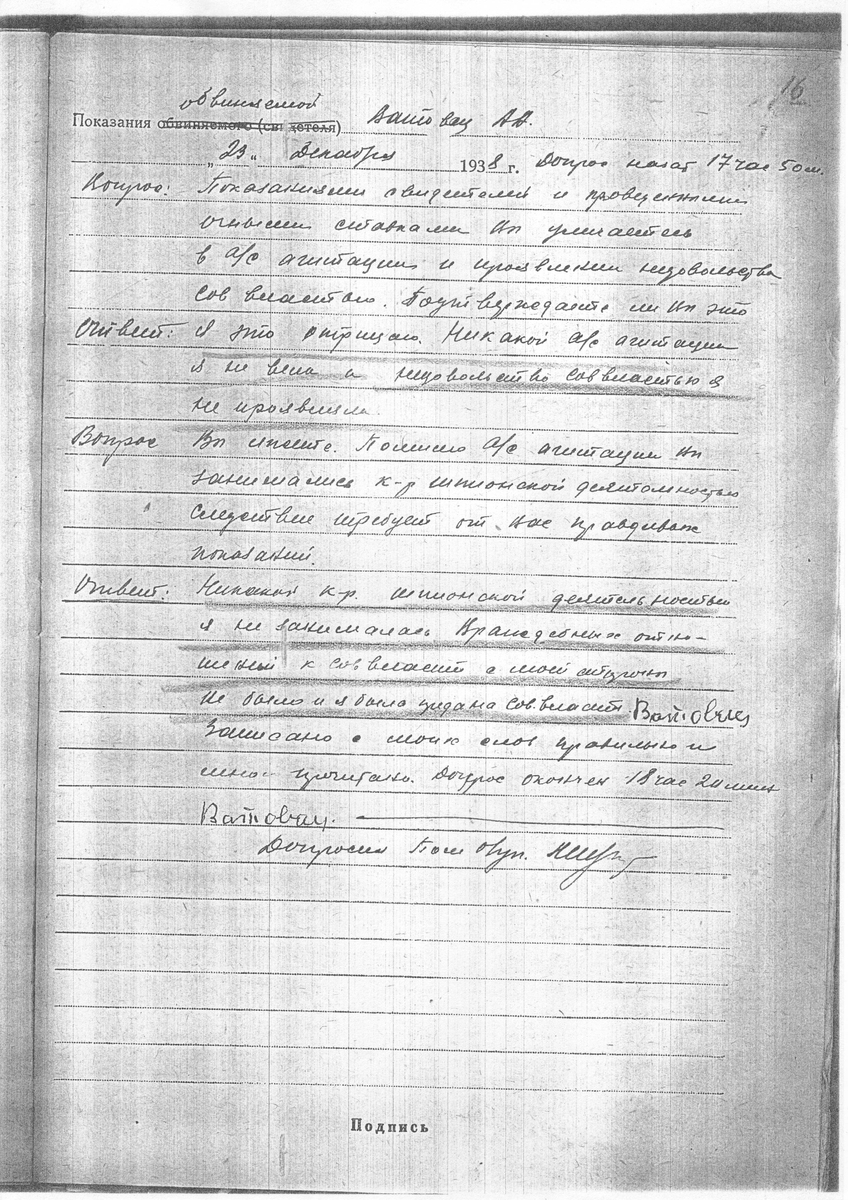 16
обвиняемой
Показания обвиняемого (свидетеля) Ватовец А.А.
„23" Декабря 1938 г. Допрос начат 17 час 50 м.
Вопрос: Показаниями свидетелей и проведенными
очными ставками Вы уличаетесь
в а/с агитации и проявлении недовольства
сов властью. Подтверждаете ли Вы это
Ответ: Я это отрицаю. Никакой а/с агитации
я не вела и недовольство сов властью я
не проявляла.
Вопрос Вы лжете. Помимо а/с агитации Вы
занимались к-р шпионской деятельностью
следствие требует от Вас правдивых
показаний.
Ответ: Никакой к-р. шпионской деятельностью
я не занималась Враждебных отно-
шений к сов власти с моей стороны
не было и я была предана сов власти Ватовец
Записано с моих слов правильно и
мною прочитано. Допрос окончен 18 час 20 мин
Ватовец.
Допросил Пом опуп.
Подпись